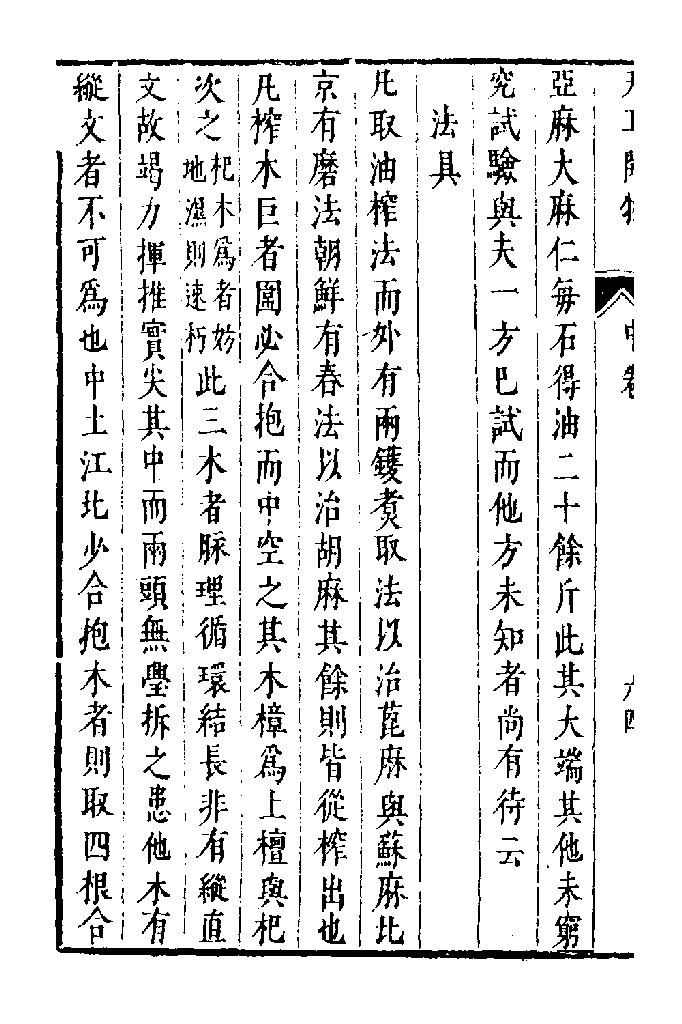 天工開物 中卷 六四
亞麻大麻仁每石得油二十餘斤此其大端其他未窮
究試驗與夫一方已試而他方未知者尚有待云
法具
凡取油榨法而外有兩鑊煑取法以治蓖麻與蘇麻北
京有磨法朝鮮有舂法以治胡麻其餘則皆從榨出也
凡榨木巨者圍必合抱而中空之其木樟爲上檀與杞
次之杞木爲者妨地濕則速朽此三木者脉理循環結長非有縱直
文故竭力揮推實尖其中而兩頭無璺拆之患他木有
縱文者不可爲也中土江北少合抱木者則取四根合